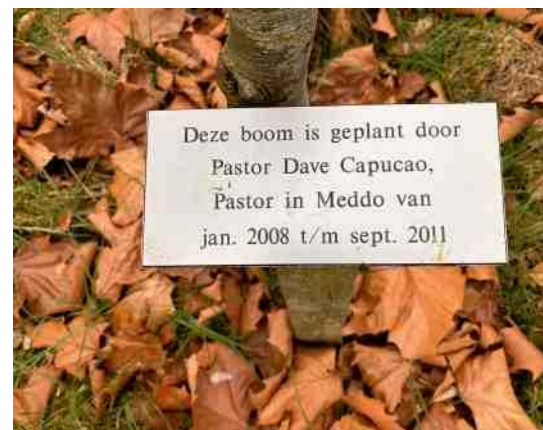 Deze boom is geplant door
Pastor Dave Capucao,
Pastor in Meddo van
jan. 2008 t/m sept. 2011